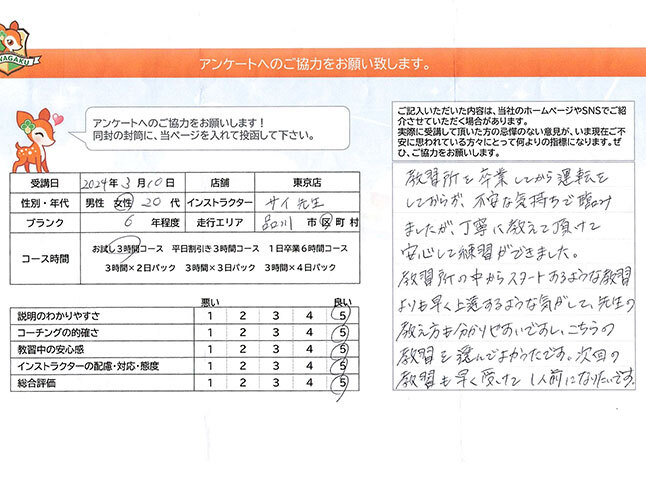 NAGAKU
アンケートへのご協力をお願い致します。
アンケートへのご協力をお願いします!
同封の封筒に、当ページを入れて投函して下さい。
ご記入いただいた内容は、当社のホームページやSNSでご紹介させていただく場合があります。
実際に受講して頂いた方の忌憚のない意見が、いま現在ご不安に思われている方々にとって何よりの指標になります。ぜひ、ご協力をお願いします。
受講日 2024年 3月 10日 店舗 東京店
性別・年代 男性 女性 20代 インストラクター サイ 先生
ブランク 6 年程度 走行エリア 品川 市 区 町 村
コース時間 お試し3時間コース 平日割引き3時間コース 1日卒業6時間コース
3時間×2日パック 3時間×3日パック 3時間×4日パック
悪い 良い
説明のわかりやすさ 1 2 3 4 5
コーチングの的確さ 1 2 3 4 5
教習中の安心感 1 2 3 4 5
インストラクターの配慮・対応・態度 1 2 3 4 5
総合評価 1 2 3 4 5
教習所を卒業してから運転を
してからが、不安な気持ちで臨み
ましたが、丁寧に教えて頂けて
安心して練習ができました。
教習所の中からスタートあるような教習
よりも早く上達するような気がして、先生の
教え方も分かりやすいですし、こちらの
教習を選んでよかったです。次回の
教習も早く受けて1人前になりたいです。